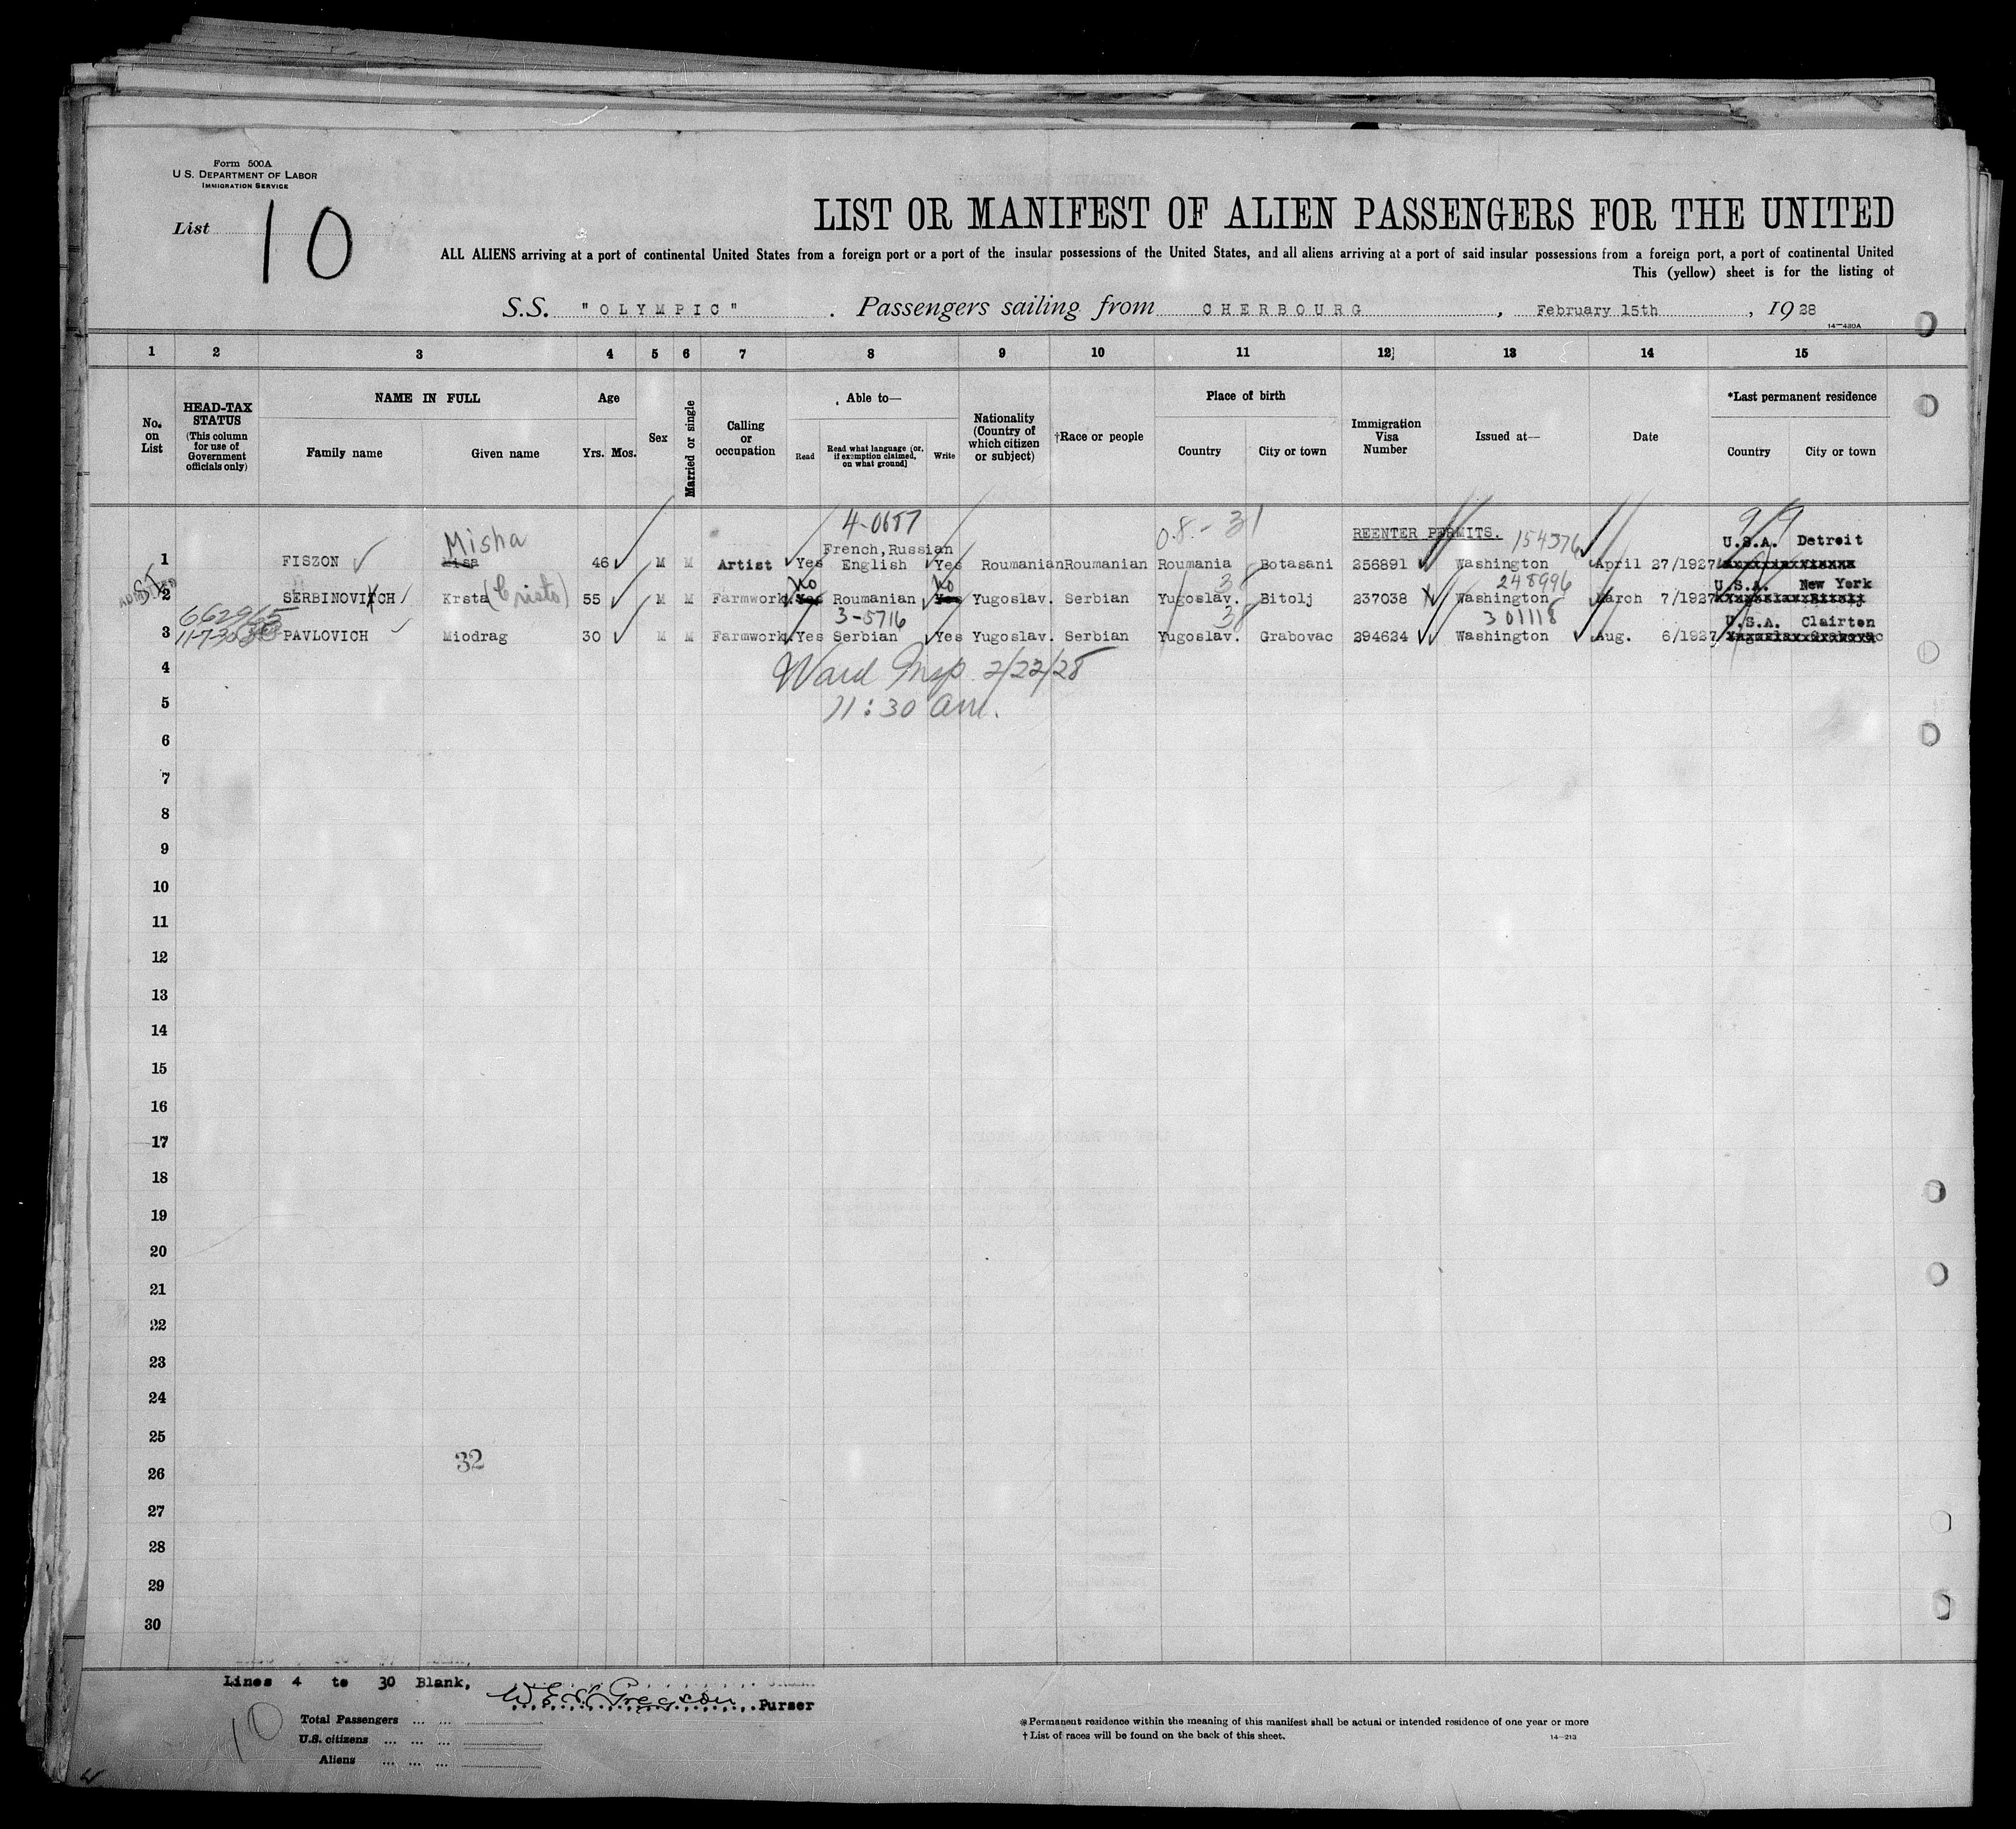 Form 500A
U.S. DEPARTMENT OF LABOR
IMMIGRATION SERVICE
List 10
LIST OR MANIFEST OF ALIEN PASSENGERS FOR THE UNITED
ALL ALIENS arriving at a port of continental United States from a foreign port or a port of the insular possessions of the United States, and all aliens arriving at a port of said insular possessions from a foreign port, a port of continental United
This (yellow) sheet is for the listing of
S.S. "OLYMPIC" . Passengers sailing from CHERBOURG , February 15th , 1928
14—430A
1 2 3 4 5 6 7 8 9 10 11 12 13 14 15
No. on List
HEAD-TAX STATUS
(This column for use of Government officials only)
NAME IN FULL
Family name Given name
Age
Yrs. Mos.
Sex
Married or single
Calling or occupation
Able to—
Read
Read what language [or, if exemption claimed, on what ground]
Write
Nationality (Country of which citizen or subject)
†Race or people
Place of birth
Country City or town
Immigration Visa Number
Issued at—
Date
*Last permanent residence
Country City or town
4-0687
Misha 08-31 REENTER PERMITS. 154376
French, Russian U.S.A. Detroit
1 FISZON Misa 46 M M Artist Yes English Yes Roumanian Roumanian Roumania Botasani 256891 Washington April 27/1927
No No 38 248996 U.S.A. New York
2 SERBINOVICH Krsta (Cristo) 55 M M Farmwork. Yes Roumanian Yes Yugoslav. Serbian Yugoslav. Bitolj 237038 Washington March 7/1927
662965 3-5716 38 301118 U.S.A. Clairton
3 PAVLOVICH Miodrag 30 M M Farmwork. Yes Serbian Yes Yugoslav. Serbian Yugoslav. Grabovac 294624 Washington Aug. 6/1927
4 Ward Insp. 2/22/28
5 11:30 am.
6
7
8
9
10
11
12
13
14
15
16
17
18
19
20
21
22
23
24
25
32
26
27
28
29
30
Lines 4 to 30 Blank, W.E.S. Gregson Purser
10
Total Passengers ... ...
U.S. citizens ... ... ...
Aliens ... ... ...
*Permanent residence within the meaning of this manifest shall be actual or intended residence of one year or more
† List of races will be found on the back of this sheet.
14—213